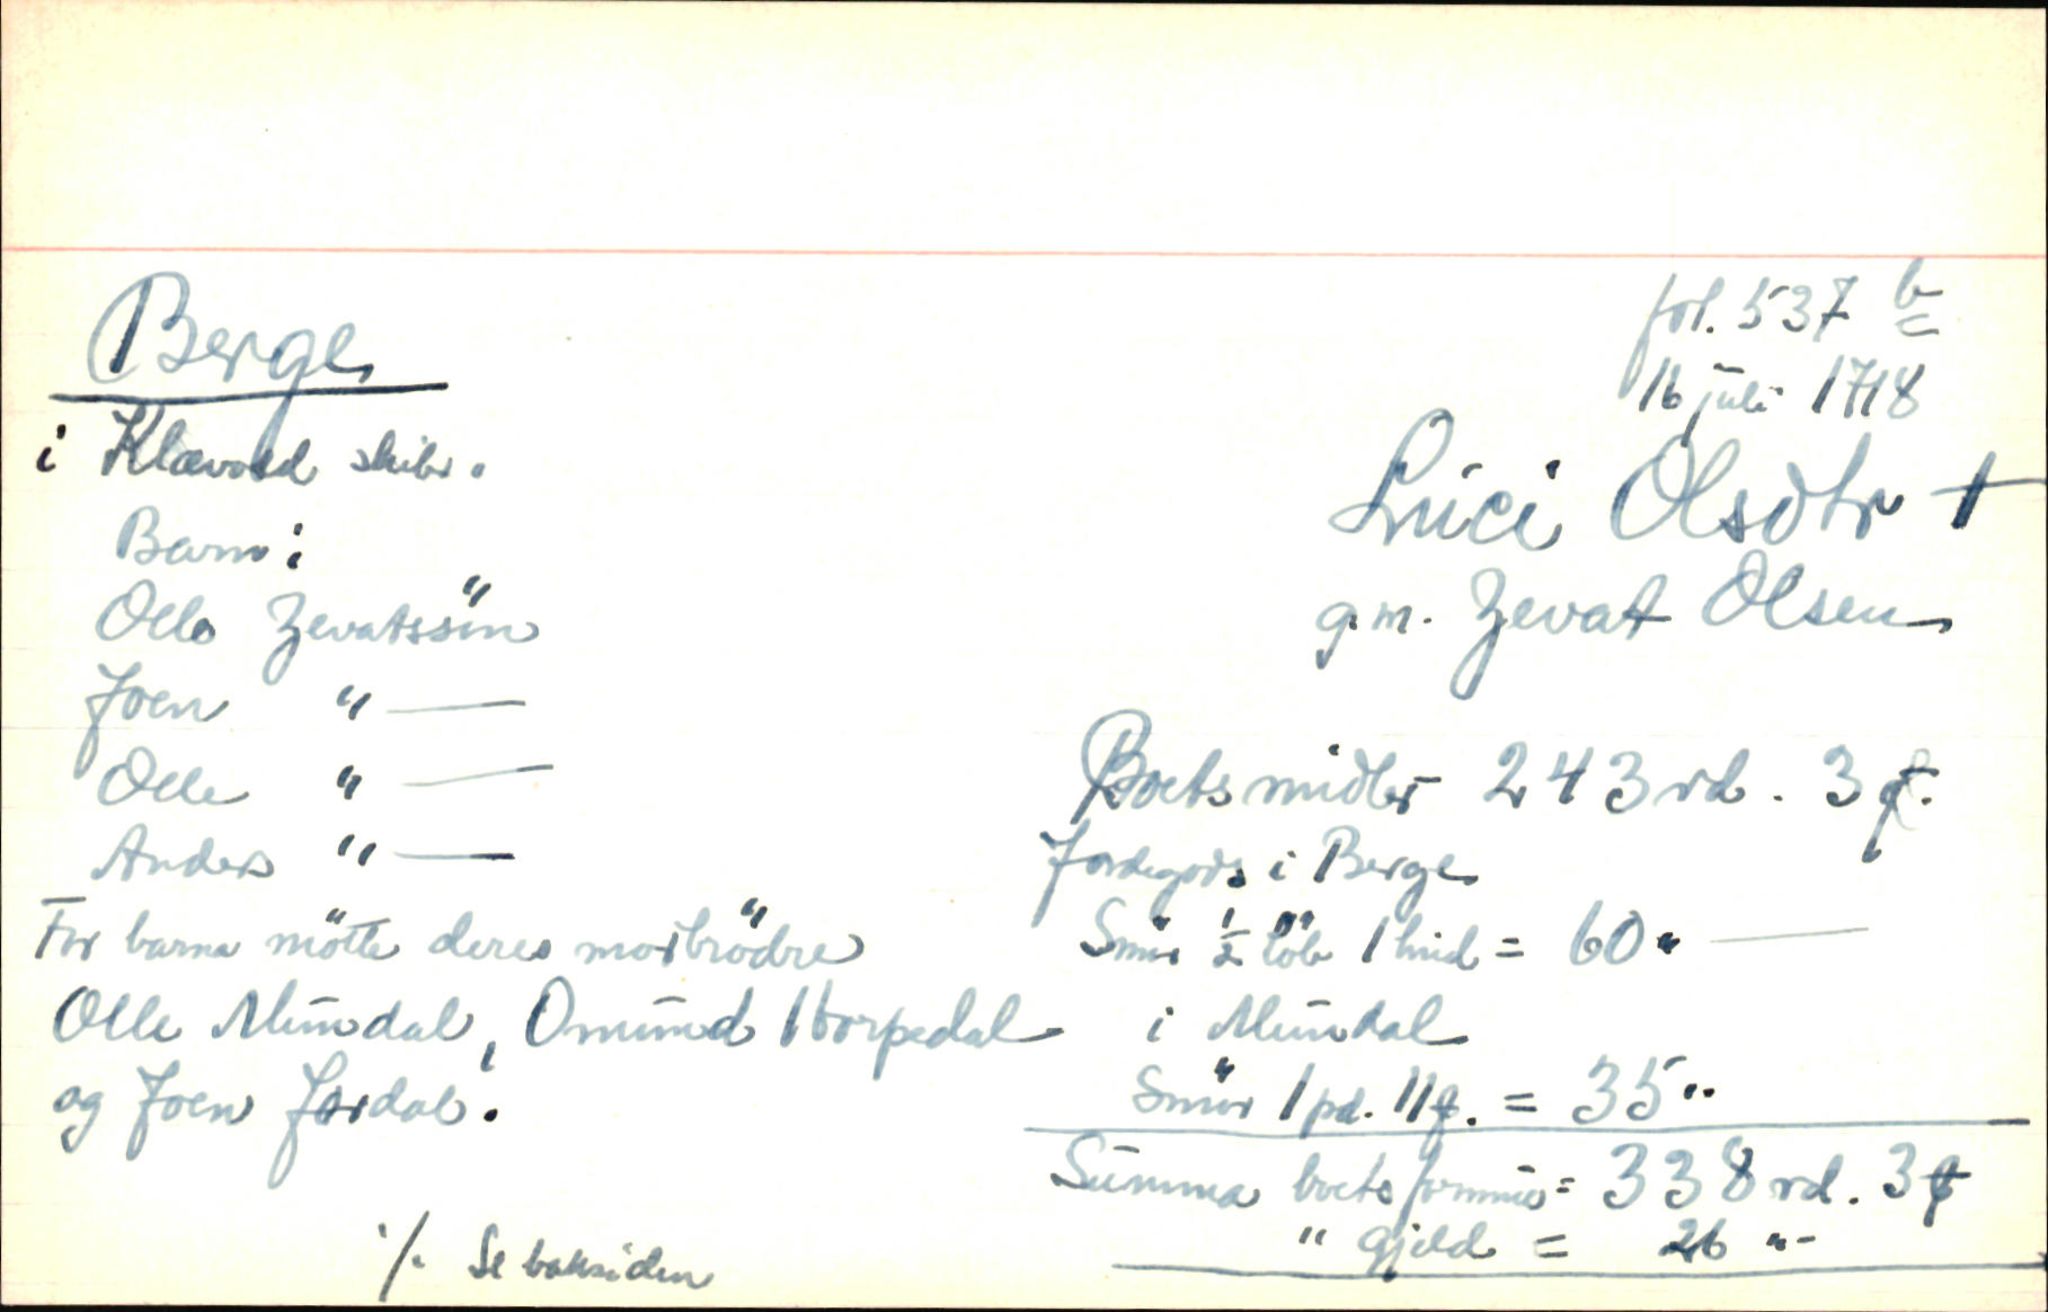 Berge
i Klævold skibr.
Barn:
Olle Zevatssön
Joen " —
Olle " —
Anders " —
For barna mötte deres morbrödre
Olle Mundal, Omund Torpedal
og Joen Jordal.
./. Se baksiden
fol. 537 b
16 juli 1718
Luci Olsdtr †
g.m. Zevat Olsen
Boets midler 243 rd. 3
Jordegods i Berge
Smör ½ löb 1 hud = 60 " —
i Mundal
Smör 1 pd. 11 = 35 "
Summa boets formue = 338 rd. 3
" gjeld = 26 " -